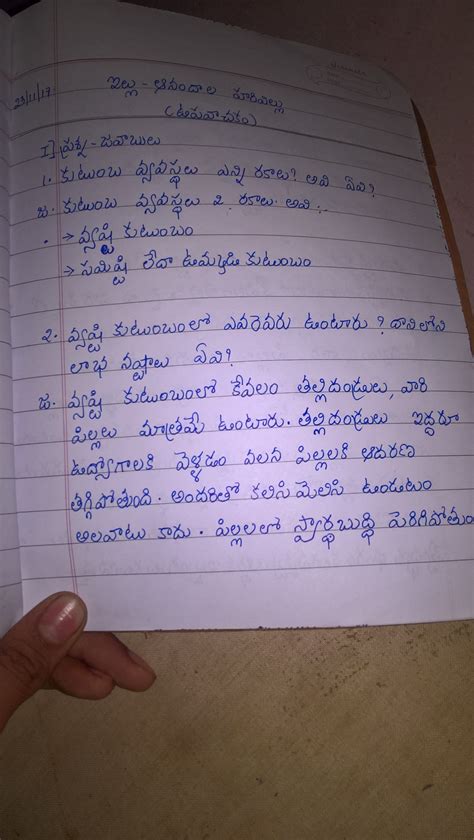 23/11/17.
ఇల్లు - ఆనందాల హరివిల్లు
(ఉపవాచకం)
I] ప్రశ్న - జవాబులు
1. కుటుంబ వ్యవస్థలు ఎన్ని రకాలు? అవి ఏవి?
జ. కుటుంబ వ్యవస్థలు 2 రకాలు. అవి :.
. → వ్యష్టి కుటుంబం
→ సమిష్టి లేదా ఉమ్మడి కుటుంబం
2. వ్యష్టి కుటుంబంలో ఎవరెవరు ఉంటారు? దానిలోని
లాభ నష్టాలు ఏవి?
జ. వ్యష్టి కుటుంబంలో కేవలం తల్లిదండ్రులు, వారి
పిల్లలు మాత్రమే ఉంటారు. తల్లిదండ్రులు ఇద్దరూ
ఉద్యోగాలకి వెళ్ళడం వలన పిల్లలకి ఆదరణ
తగ్గిపోతుంది. అందరితో కలిసిమెలిసి ఉండుటం
అలవాటు కాదు. పిల్లలలో స్వార్థబుద్ధి పెరిగిపోతుం